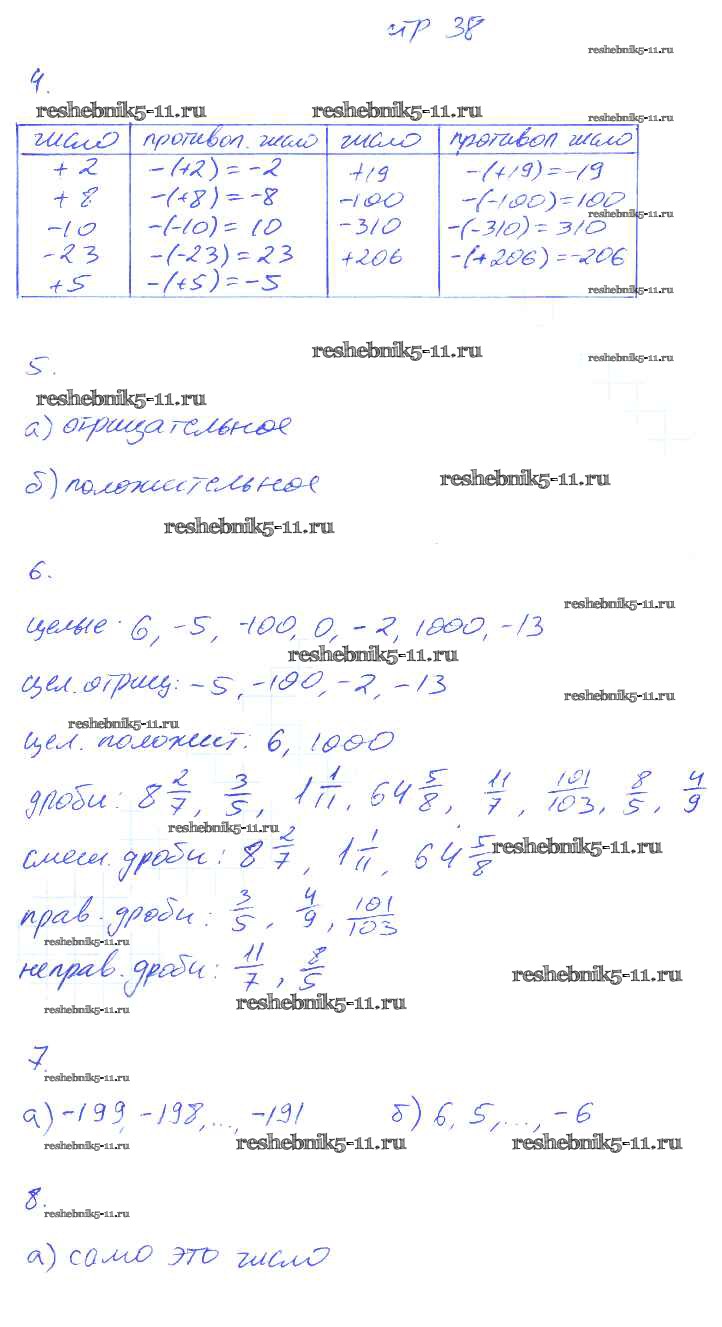 стр 38
reshebnik5-11.ru
4.
reshebnik5-11.ru reshebnik5-11.ru reshebnik5-11.ru
число противопол. число число противопол число
+2 -(+2)=-2 +19 -(+19)=-19
+8 -(+8)=-8 -100 -(-100)=100
reshebnik5-11.ru
-10 -(-10)=10 -310 -(-310)=310
-23 -(-23)=23 +206 -(+206)=-206
+5 -(+5)=-5
reshebnik5-11.ru
reshebnik5-11.ru reshebnik5-11.ru
5.
reshebnik5-11.ru
а) отрицательное
б) положительное
reshebnik5-11.ru
reshebnik5-11.ru
6.
reshebnik5-11.ru
целые: 6, -5, -100, 0, -2, 1000, -13
reshebnik5-11.ru
цел. отриц: -5, -100, -2, -13
reshebnik5-11.ru
reshebnik5-11.ru
цел. положит: 6, 1000
дроби: 8 2/7, 3/5, 1 1/11, 64 5/8, 11/7, 101/103, 8/5, 4/9
reshebnik5-11.ru
смеш. дроби: 8 2/7, 1 1/11, 64 5/8
reshebnik5-11.ru
прав. дроби: 3/5, 4/9, 101/103
reshebnik5-11.ru
неправ. дроби: 11/7, 8/5
reshebnik5-11.ru
reshebnik5-11.ru reshebnik5-11.ru
7.
reshebnik5-11.ru
а) -199, -198, ..., -191 б) 6, 5, ..., -6
reshebnik5-11.ru reshebnik5-11.ru reshebnik5-11.ru
8.
reshebnik5-11.ru
а) само это число